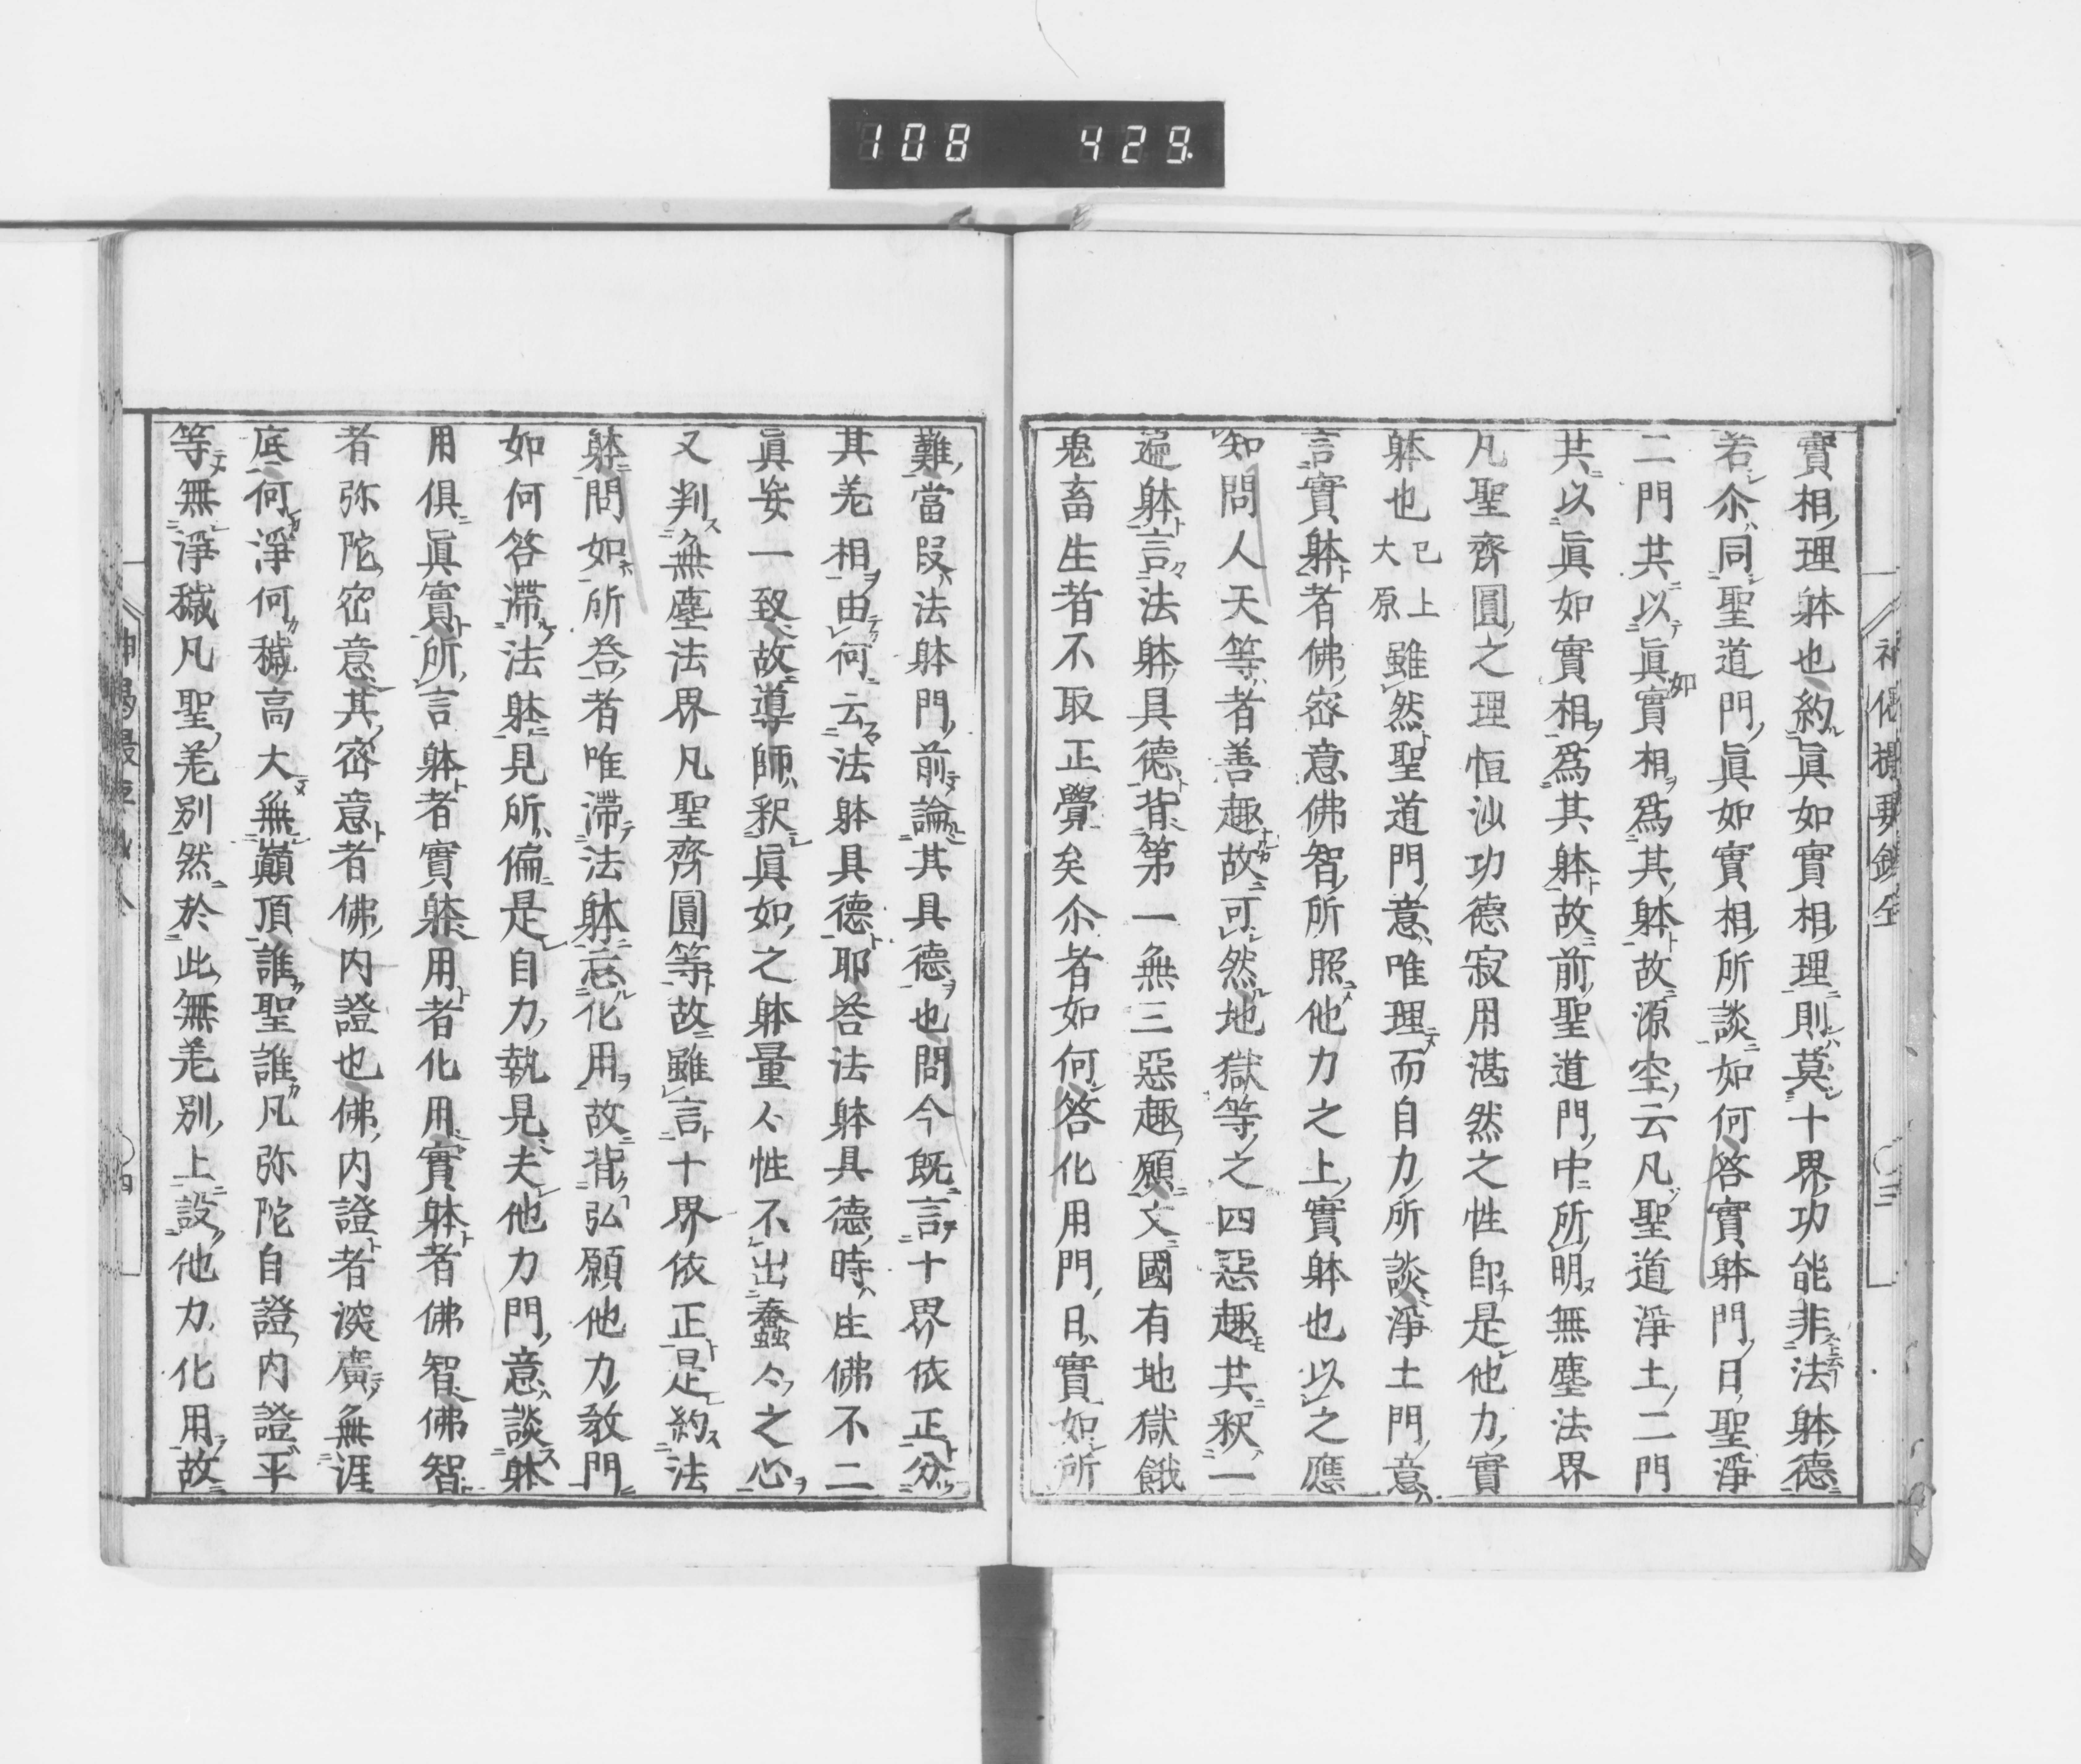 108 429.
實相理躰也約眞如實相理則莫十界功能非法躰德
若尒同聖道門眞如實相所談如何答實躰門日聖淨
二門共以眞實相爲其躰故源空云凡聖道淨土二門
共以眞如實相爲其躰故前聖道門中所明無塵法界
凡聖齊圓之理恒沙功德寂用湛然之性即是他力實
躰也已上大原雖然聖道門意唯理而自力所談淨土門意
言實躰者佛密意佛智所照他力之上實躰也以之應
知問人天等者善趣故可然地獄等之四惡趣共釈一
遍躰言法躰具德背第一無三惡趣願文國有地獄餓
鬼畜生者不取正覺矣尒者如何答化用門日實如所
難當段法躰門前論其具德也問今既言十界依正分
其羌相由何云法躰具德耶答法躰具德時生佛不二
眞妄一致故導師釈眞如之躰量量性不出蠢蠢之心
又判無塵法界凡聖齊圓等故雖言十界依正是約法
躰問如所答者唯滯法躰忘化用故背弘願他力敎門
如何答滯法躰見所偏是自力執見夫他力門意談躰
用俱眞實所言躰者實躰用者化用實躰者佛智佛智
者弥陀密意其密意者佛內證也佛內證者深廣無涯
底何淨何穢高大無巓頂誰聖誰凡弥陀自證內證平
等無淨穢凡聖羌別然於此無羌別上設他力化用故